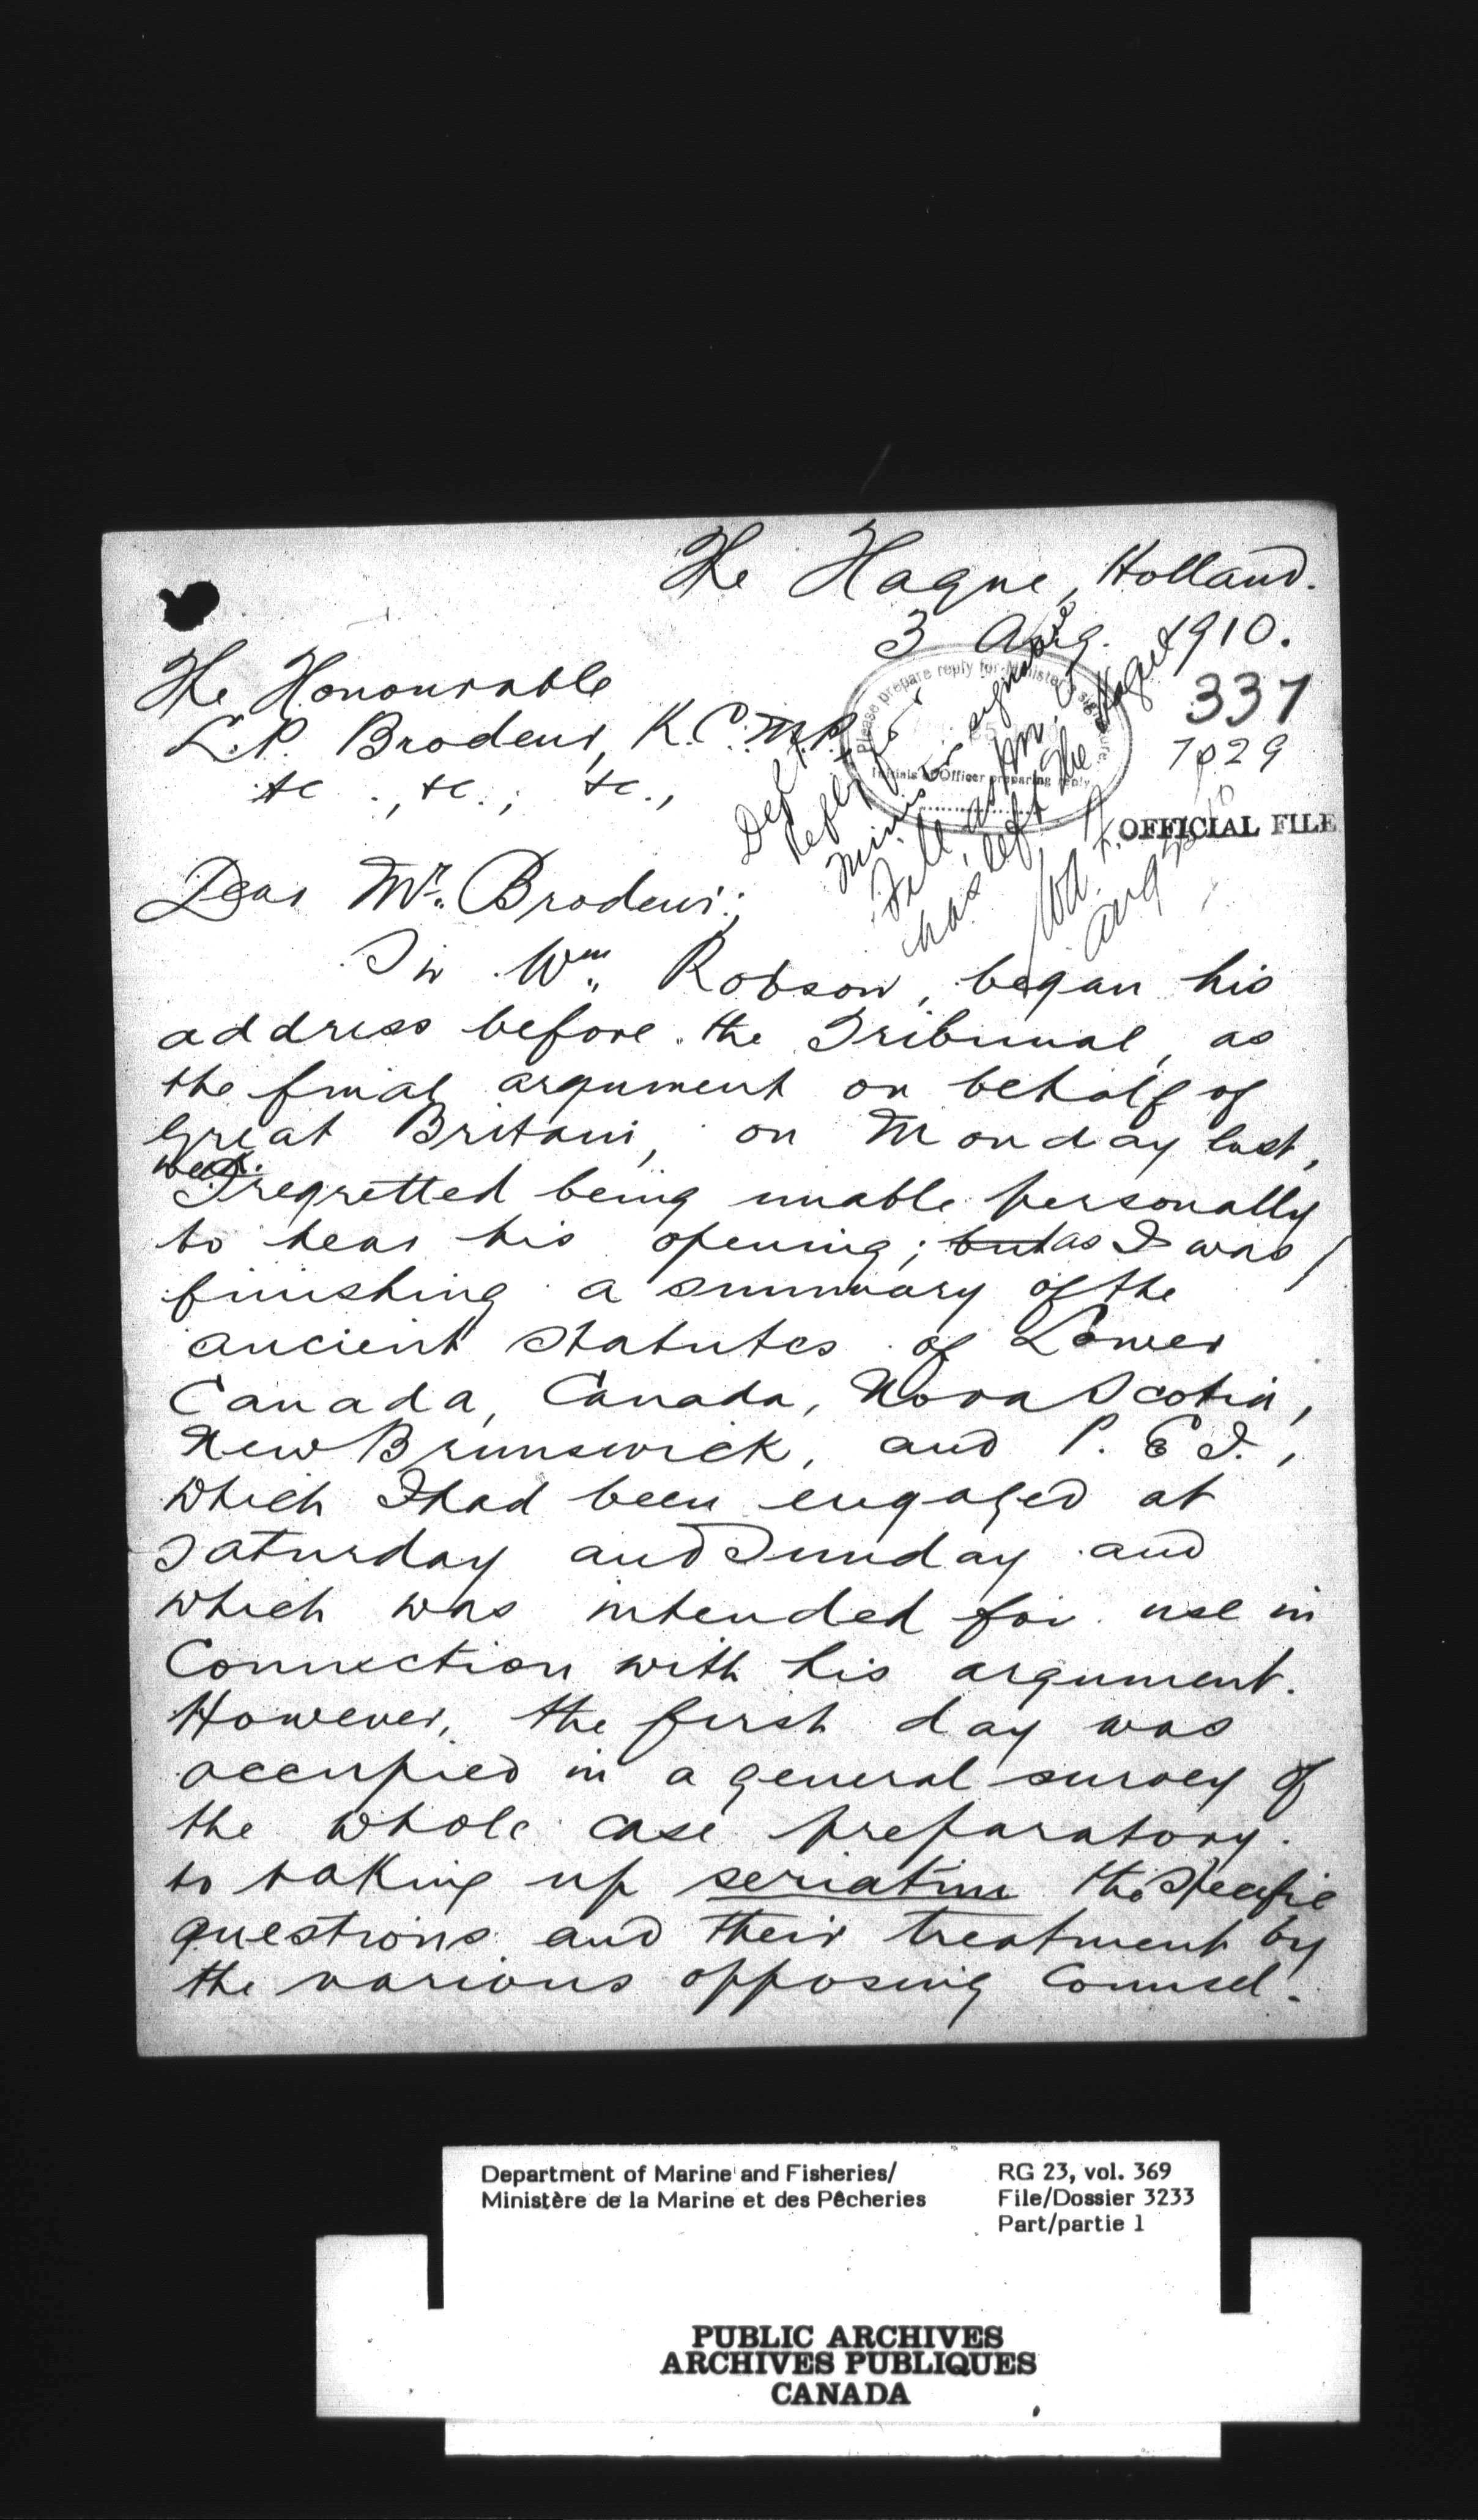 The Hague, Holland.
3 Aug. 1910.
The Honourable
L.P. Brodeur, K.C. M.P.
&c., &c.; &c.,
337
7029
OFFICIAL FILE
Please prepare reply for Minister's signature.
Initials of Officer preparing reply
Dept
Reply for
Minister's signature
has left The Hague
Aug
Dear Mr. Brodeur;
Sir Wm. Robson, began his
address before the Tribunal, as
the final argument on behalf of
Great Britain, on Monday last,
week.
I regretted being unable personally
to hear his opening; but as I was
finishing a summary of the
ancient statutes of Lower
Canada, Canada, Nova Scotia,
New Brunswick, and P. E I.,
which I had been engaged at
Saturday and Sunday and
which was intended for use in
Connection with his argument.
However, the first day was
occupied in a general survey of
the whole case preparatory
to taking up seriatim the specific
questions and their treatment by
the various opposing Counsel.
Department of Marine and Fisheries/
Ministère de la Marine et des Pêcheries
RG 23, vol. 369
File/Dossier 3233
Part/partie 1
PUBLIC ARCHIVES
ARCHIVES PUBLIQUES
CANADA